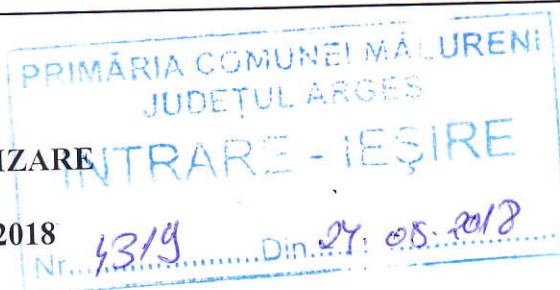 PRIMĂRIA COMUNEI MĂLURENI
JUDEȚUL ARGEȘ
IZARE
INTRARE - IEȘIRE
2018
Nr.... 4319 ........Din. 24. 05. 2018